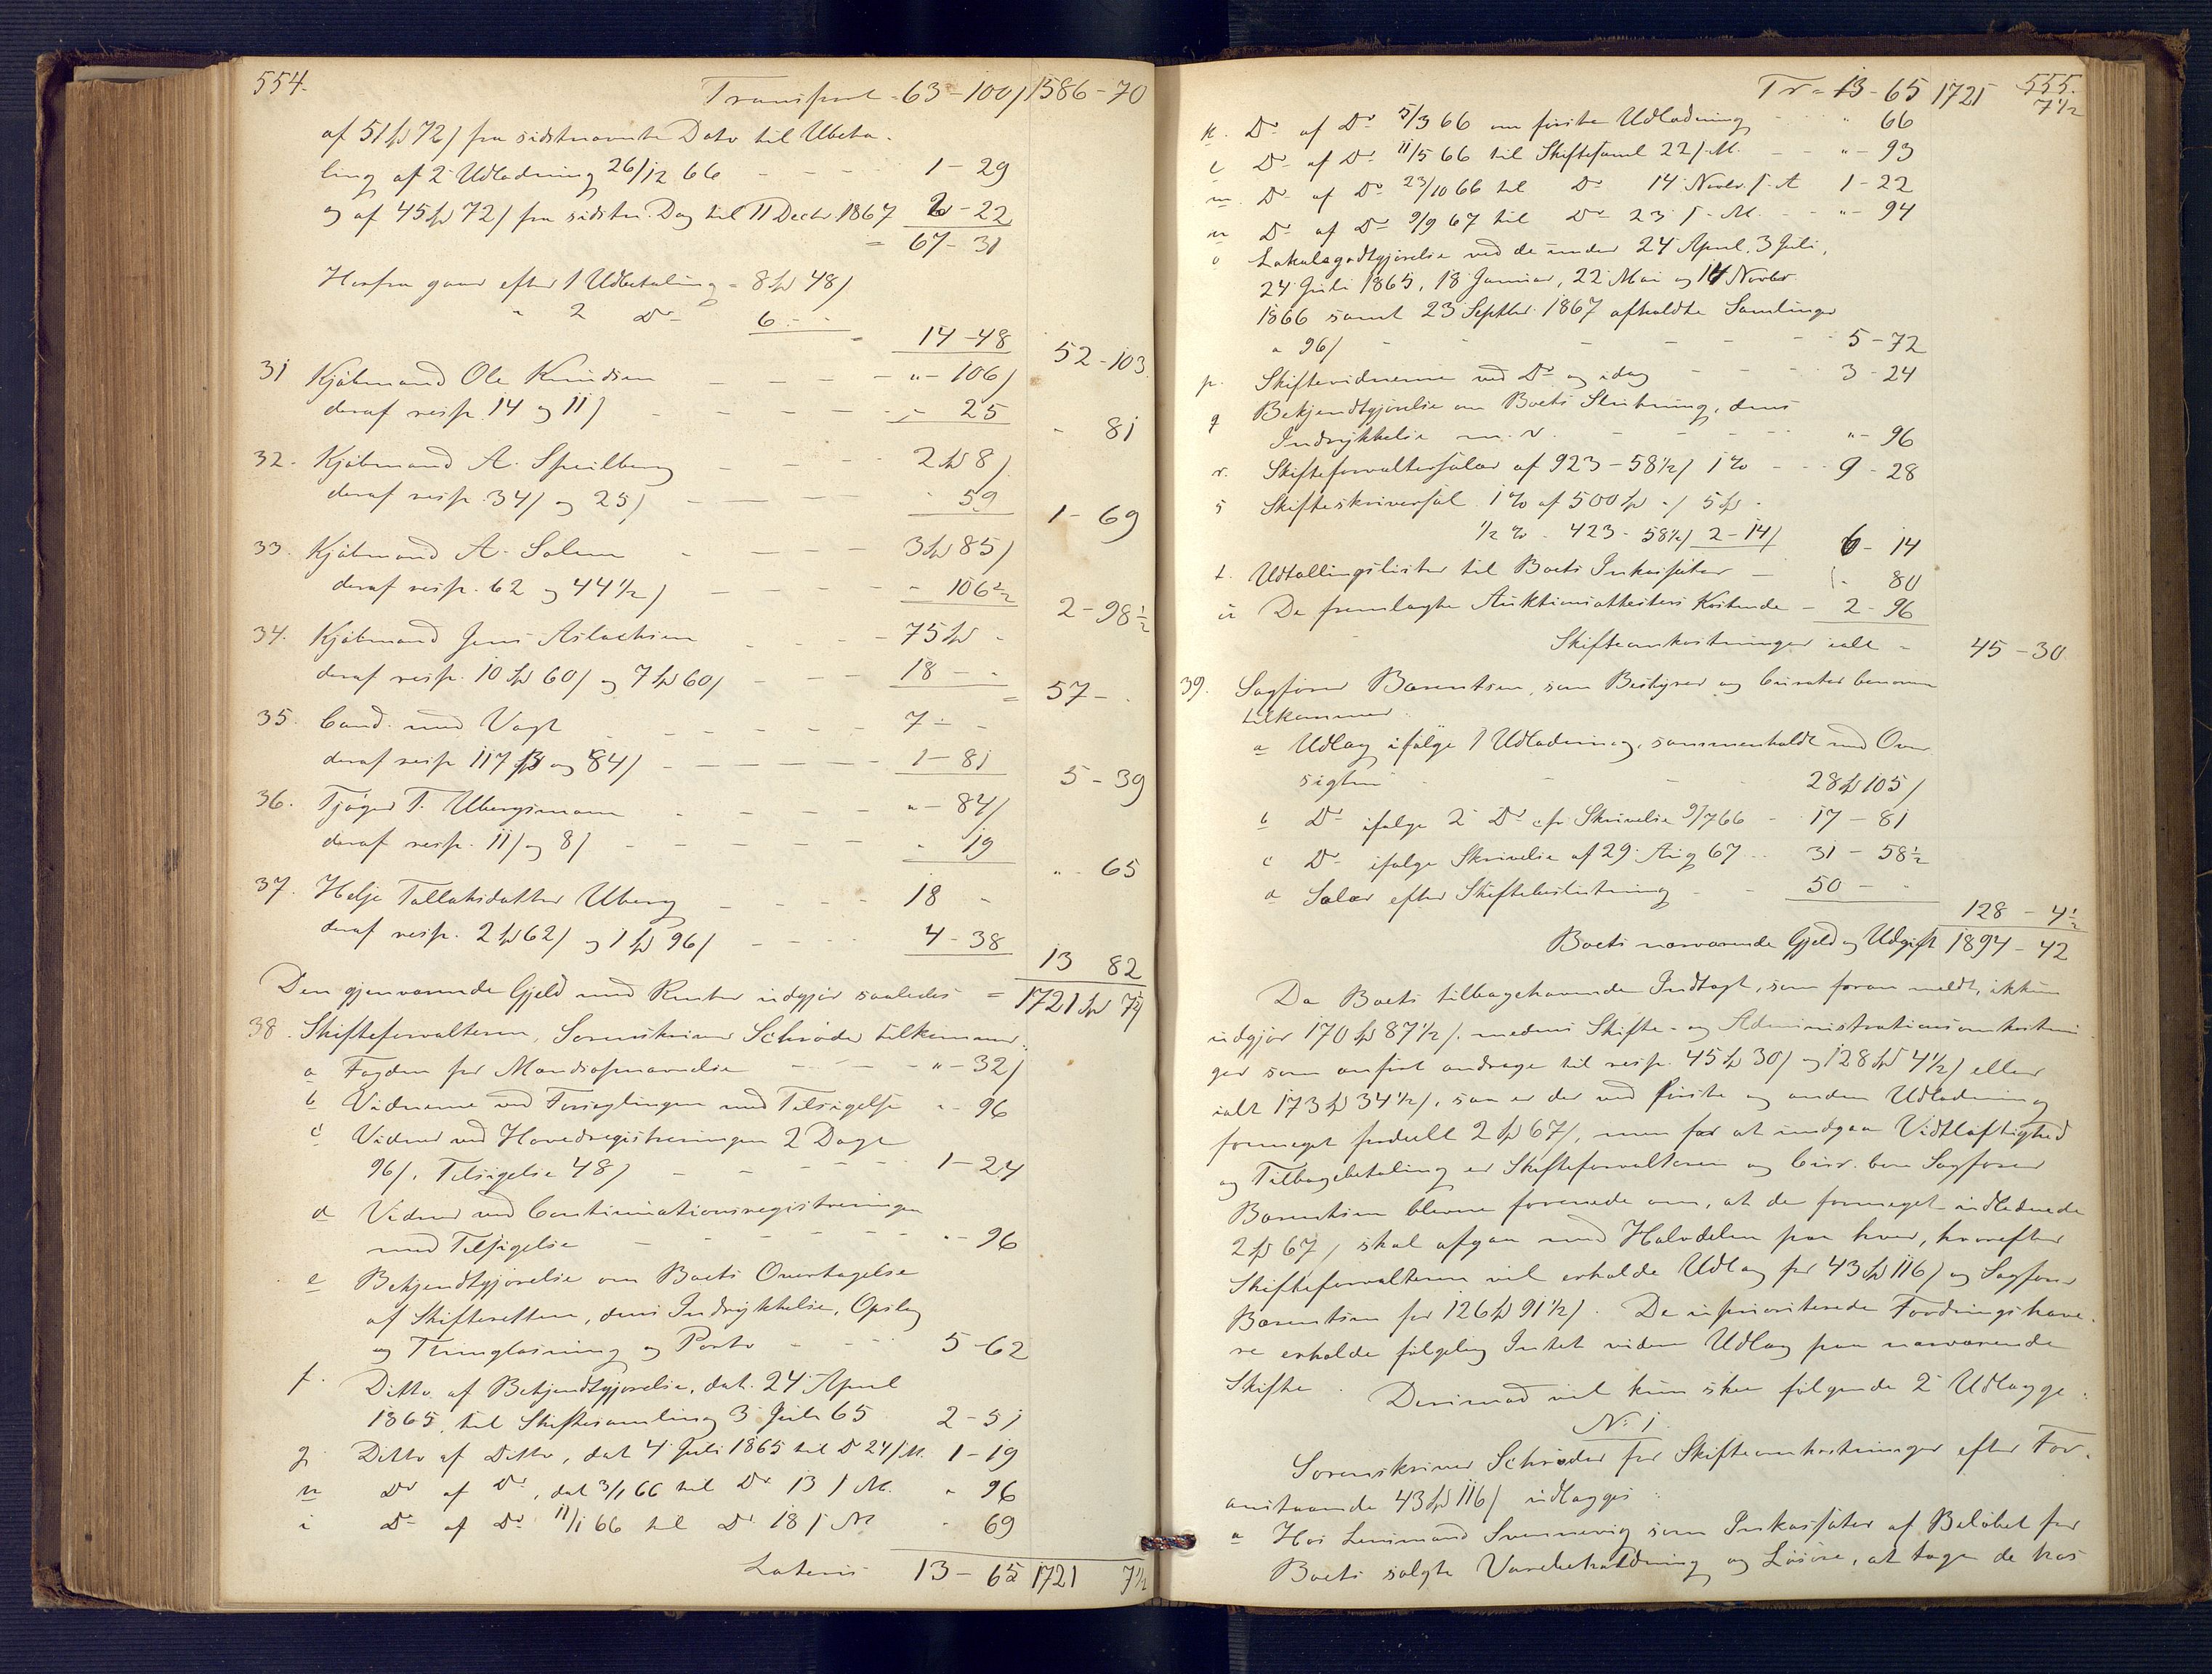 554.
Transport - 63 - 100 / 1586 - 70
af 51 Spd 72 / fra sidstnævnte Dato til Ubeta-
ling af 2 Udlodning 26/12 66 - - - 1 - 29
og af 45 Spd 72 / fra sidstn. Dag til 11 Decbr. 1867 2 - 22
= 67 - 31
Herfra gaar efter 1 Udbetaling - 8 Spd 48 /
" 2 Do 6 - -
- 14 - 48 52 - 103
31 Kjøbmand Ole Knudsen - - - - " - 106 /
deraf resp. 14 og 11 / - - - - " - 25
- 81
32. Kjøbmand A. Speilberg - - - 2 Spd 8 /
deraf resp. 34 / og 25 / - - - - 59
1 - 69
33. Kjøbmand A. Salum - - - - 3 Spd 85 /
deraf resp. 62 og 44 1/2 / - - - - 106 1/2
2 - 98 1/2
34. Kjøbmand Jens Aslachsen - - - 75 Spd -
deraf resp. 10 Spd 60 / og 7 Spd 60 / - - - 18 - -
= 57 -
35. Cand. med Vogt - - - - - 7 - -
deraf resp 117 / og 84 / - - - - - 1 - 81
5 - 39
36. T. Ubergsmoen - - - - " - 84 /
deraf resp. 11 / og 8 / - - - - - - 19
" - 65
37. Helje Tallaksdatter Uberg - - - - 18 -
deraf resp. 2 Spd 62 / og 1 Spd 96 / - - - - 4 - 38
13 82
Den gjenværende Gjeld med Renter udgjør saaledes = 1721 Spd 7 1/2
38. Skifteforvalteren, Sorenskriver Schrøder tilkommer:
a Fogden for Mandsopnævnelse - - - - " - 32 /
b Vidnerne ved Forseglingen med Tilsigelse " - 96
c Vidner ved Hovedregistreringen 2 Dage
96 /, Tilsigelse 48 / - - - - - 1 - 24
d Vidner ved Continuationsregistreringen
med Tilsigelse - - - - - " - 96
e Bekjendtgjørelse om Boets Overtagelse
af Skifteretten, dens Indrykkelse, Opslag
og Thinglæsning og Porto - - - 5 - 62
f. Ditto af Bekjendtgjørelse, dat. 24 April
1865, til Skiftesamling 3 Juli 65 2 - 51
g. Ditto af Ditto, dat 4 Juli 1865 til Do 24 / M. 1 - 19
h Do af Do, dat 3/1 66 til Do 13 / M. " 96
i Do af Do 11/1 66 til Do 18 / M - 69
Lateris 13 - 65 1721 7 1/2
555.
Tr = 13 - 65 1721 7 1/2
k. Do af Do 5/3 66 om første Udlodning - - " 66
l Do af Do 11/5 66 til Skiftesaml 22 / M. - - " - 93
m. Do af Do 23/10 66 til Do 14 Novbr. f. A 1 - 22
n Do af Do 9/9 67 til Do 23 f. M. - - " - 94
o Lokalegodtgjørelse ved de under 24 April, 3 Juli,
24 Juli 1865, 18 Januar, 22 Mai og 14 Novbr
1866 samt 23 Septbr. 1867 afholdte Samlinger
a 96 / - - - - - - 5 - 72
p. Skiftevidnerne ved Do og idag - - - 3 - 24
q Bekjendtgjørelse om Boets Slutning, dens
Indrykkelse m. v. - - - - - " - 96
r. Skifteforvaltersalær af 923 - 58 1/2 / 1 % - - - 9 - 28
s Skifteskriversal. 1 % af 500 Spd - / 5 Spd -
1/2 % - 423 - 58 1/2 / 2 - 14 / 6 - 14
t. Udtællingslister til Boets Inkassator - - 80
u De fremlagte Auktionsattesters Kostende - 2 - 96
Skifteomkostninger ialt - 45 - 30
39. Sagfører Barentsen, som Bestyrer og Curator bonorum
tilkommer:
a Udlæg ifølge 1 Udlodning, sammenholdt med Over-
sigten - - - 28 Spd 105 /
b Do ifølge 2 Do cfr Skrivelse 9/7 66 - 17 - 81
c Do ifølge Skrivelse af 29 Aug 67 - - 31 - 58 1/2
d Salær efter Skiftebeslutning - - 50 - -
128 - 4 1/2
Boets nærværende Gjeld og Udgift 1894 - 42
Da Boets tilbageværende Indtægt, som foran meldt, ikkun
udgjør 170 Spd 87 1/2 /, medens Skifte- og Administrationsomkostnin-
ger som anført andrage til resp. 45 Spd 30 / og 128 Spd 4 1/2 / eller
ialt 173 Spd 34 1/2 /, saa er der ved første og anden Udlodning
formeget fordeelt 2 Spd 67 /, men for at undgaa Vidtløftighed
og Tilbagebetaling er Skifteforvalteren og Cur. bon. Sagfører
Barentsen blevne forenede om, at de formeget udlodnede
2 Spd 67 / skal afgaa med Halvdelen paa hver, hvorefter
Skifteforvalteren vil erholde Udlæg for 43 Spd 116 / og Sagfører
Barentsen for 126 Spd 91 1/2 /. De uprioriterede Fordringshave-
re erholde følgelig Intet videre Udlæg paa nærværende
Skifte. Derimod vil kun skee følgende 2 Udlægge:
No 1.
Sorenskriver Schrøder for Skifteomkostninger efter For-
anstaaende 43 Spd 116 / udlægges:
a Hos Lensmand Svennevig som Inkassator af Beløbet for
Boets solgte Varebeholdning og Løsøre, at tage de hos